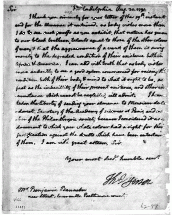 Sir Philadelphia Aug. 30. 1791.
I thank you sincerely for your letter of the 19th instant
and for the Almanac it contained. no body wishes more than
I do to see such proofs as you exhibit, that nature has given to
our black brethren, talents equal to those of the other colours
of men, & that the appearance of a want of them is owing
merely to the degraded condition of their existence both in
Africa & America. I can add with truth that no body wishes
more ardently to see a good system commenced for raising the
condition both of their body & mind to what it ought to be, as
fast as the imbecillity of their present existence, and other
circumstance which cannot be neglected, will admit. I have
taken the liberty of sending your almanac to Monsieur de Con-
dorcet, Secretary of the Academy of sciences at Paris, and mem-
ber of the Philanthropic society because I considered it as a
document to which your whole colour had a right for their
justification against the doubts which have been entertained
of them. I am with great esteem, Sir
Your most obedt. humble servt.
Th: Jefferson
Mr. Benjamin Banneker